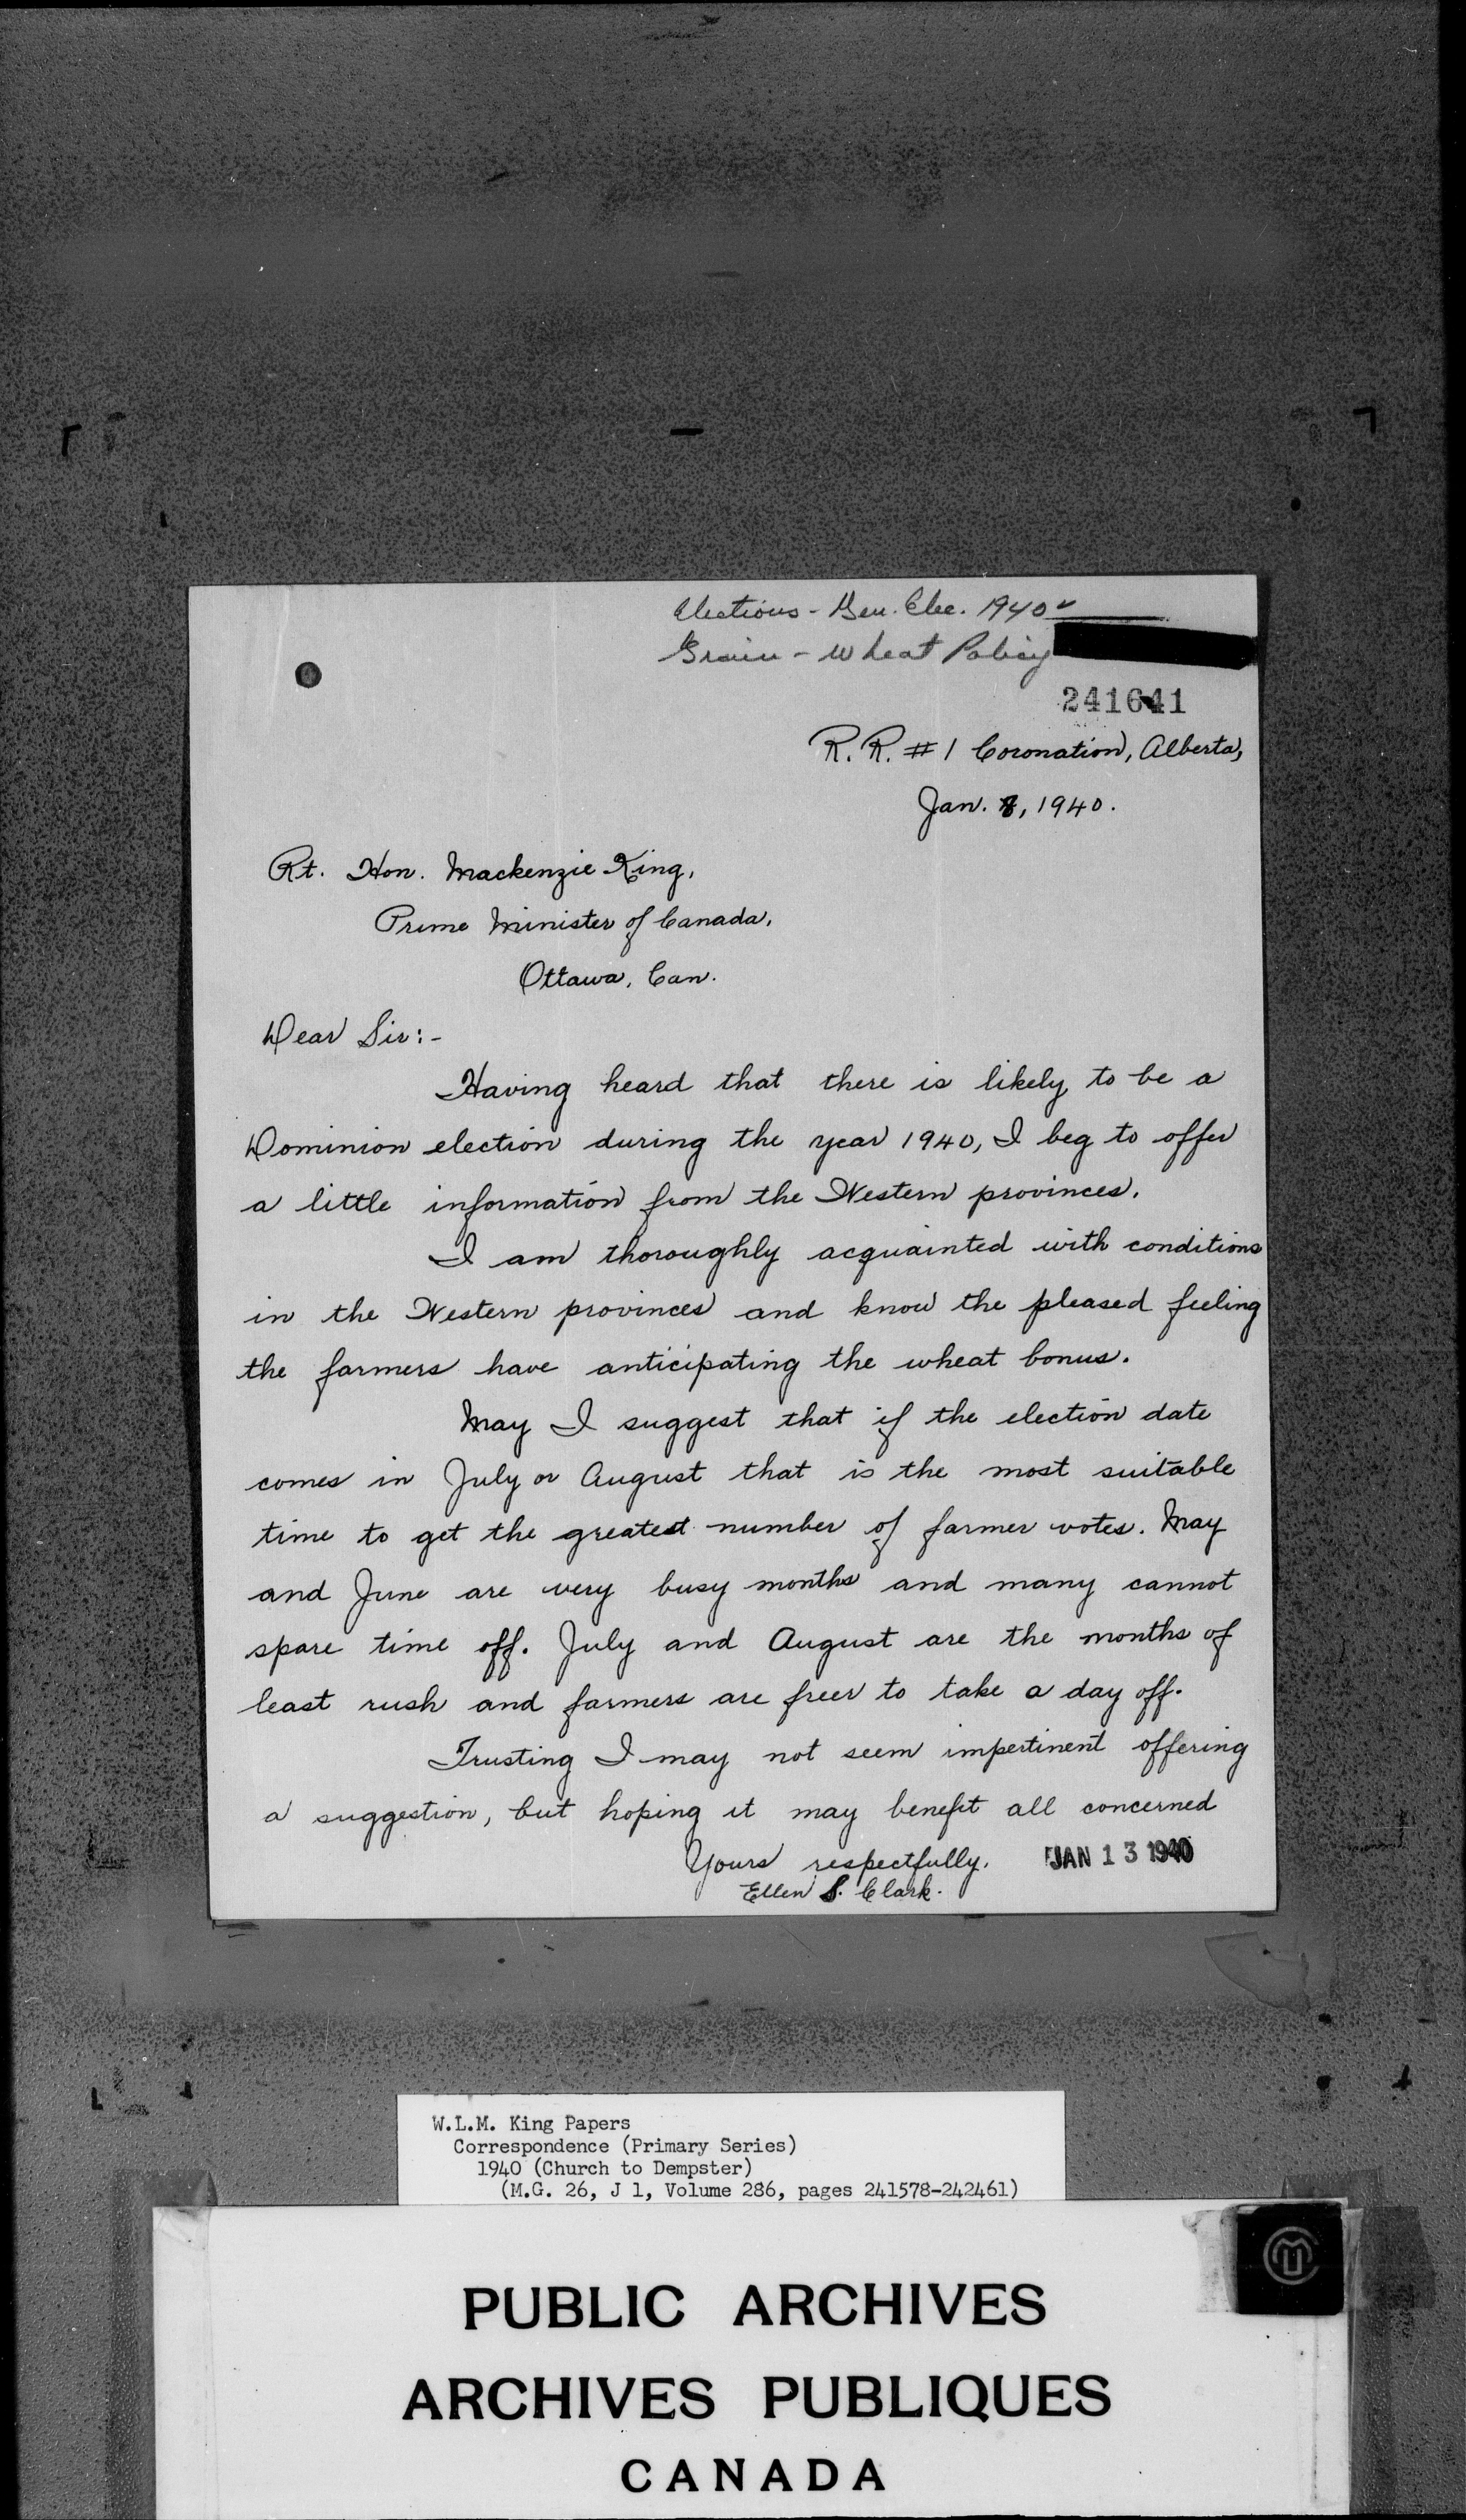 Elections - Gen. Elec. 1940
Grain - Wheat Policy
241641
R. R. #1 Coronation, Alberta,
Jan. 8, 1940.
Rt. Hon. Mackenzie King,
Prime Minister of Canada,
Ottawa, Can.
Dear Sir:-
Having heard that there is likely to be a
Dominion election during the year 1940, I beg to offer
a little information from the Western provinces.
I am thoroughly acquainted with conditions
in the Western provinces and know the pleased feeling
the farmers have anticipating the wheat bonus.
May I suggest that if the election date
comes in July or August that is the most suitable
time to get the greatest number of farmer votes. May
and June are very busy months and many cannot
spare time off. July and August are the months of
least rush and farmers are freer to take a day off.
Trusting I may not seem impertinent offering
a suggestion, but hoping it may benefit all concerned
Yours respectfully,
JAN 13 1940
Ellen S. Clark.
W.L.M. King Papers
Correspondence (Primary Series)
1940 (Church to Dempster)
(M.G. 26, J 1, Volume 286, pages 241578-242461)
PUBLIC ARCHIVES
ARCHIVES PUBLIQUES
CANADA